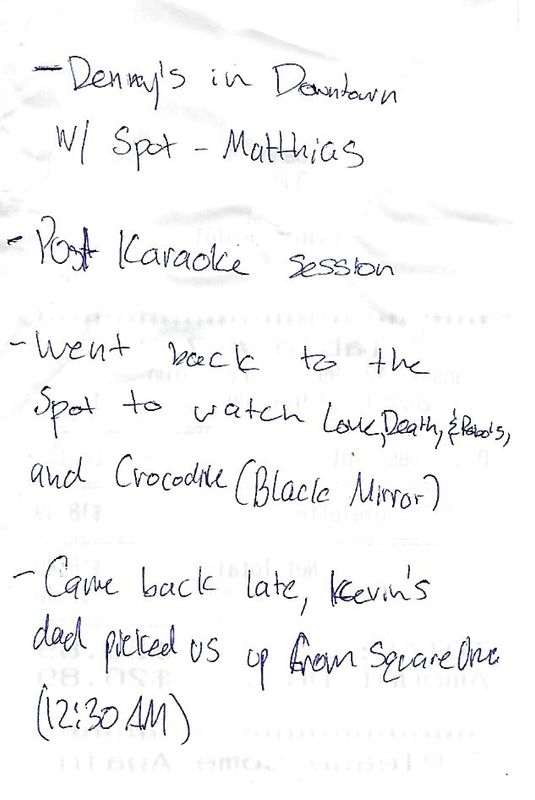 - Denny's in Downtown
W/ Spot - Matthias
- Post Karaoke Session
- Went back to the
Spot to watch Love, Death, & Robots,
and Crocodile (Black Mirror)
- Came back late, Kevin's
dad picked us up from Square One
(12:30 AM)